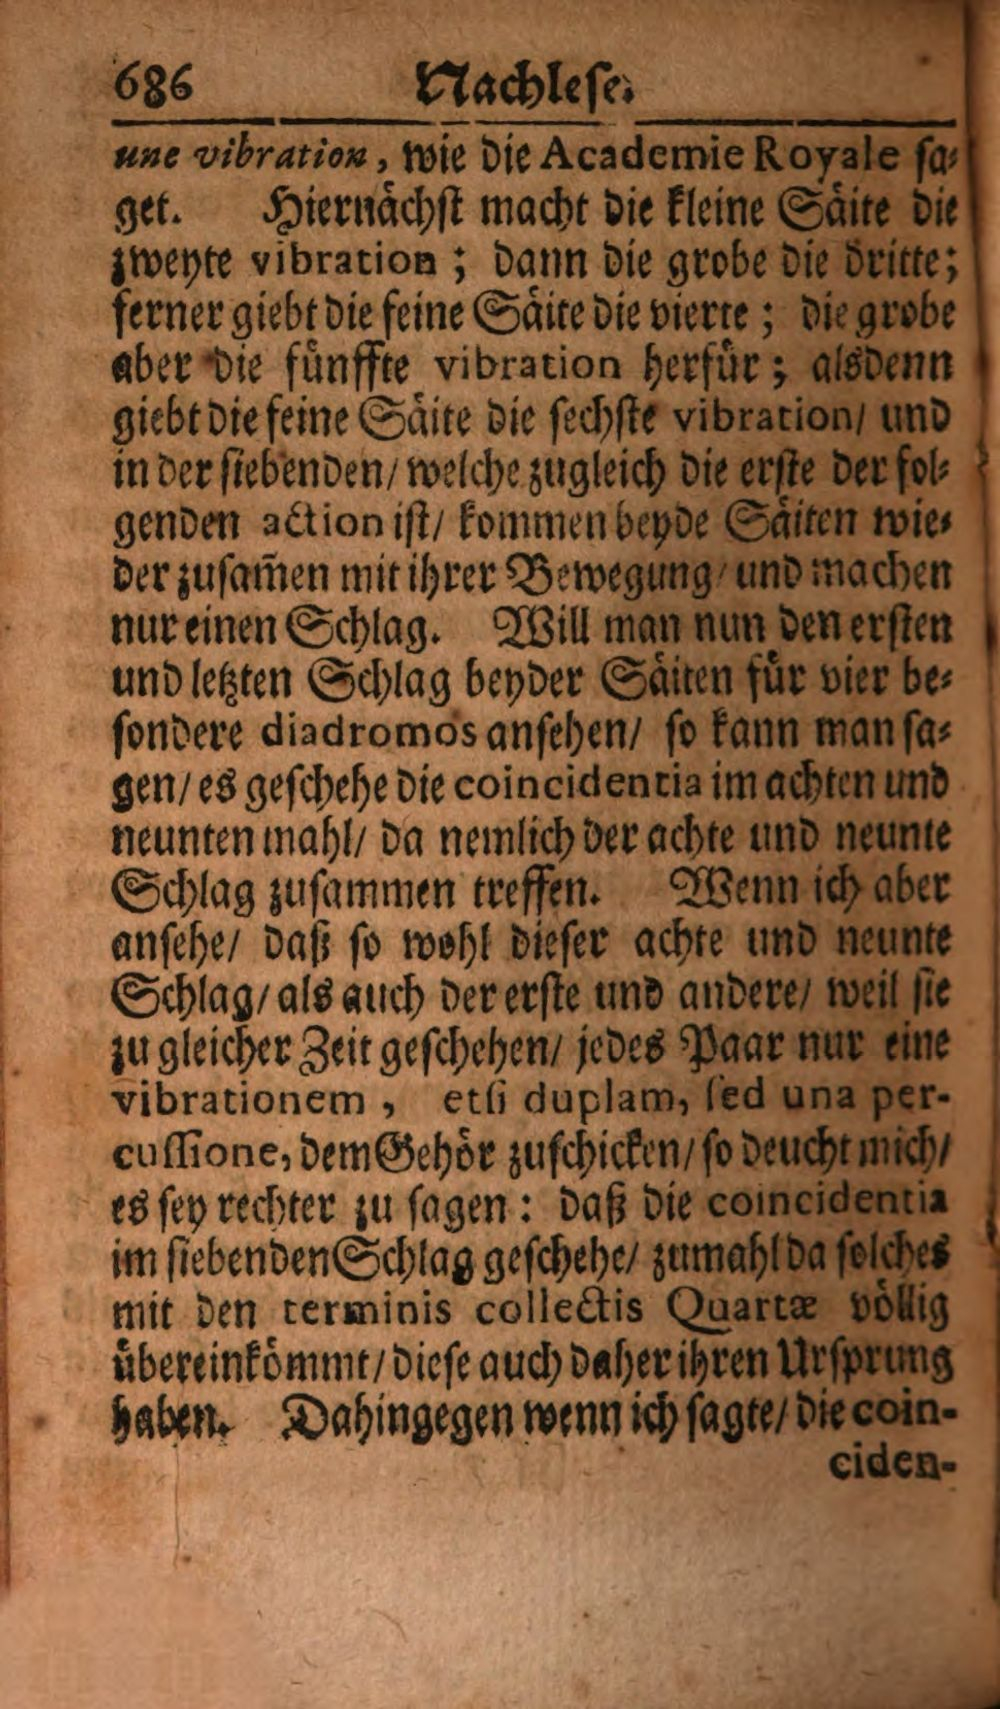 686 Nachlese.
une vibration, wie die Academie Royale sa⸗
get. Hiernächst macht die kleine Säite die
zweyte vibration; dann die grobe die dritte;
ferner giebt die feine Säite die vierte; die grobe
aber die fünffte vibration herfür; alsdenn
giebt die feine Säite die sechste vibration/ und
in der siebenden/ welche zugleich die erste der fol⸗
genden action ist/ kommen beyde Säiten wie⸗
der zusam̃en mit ihrer Bewegung/ und machen
nur einen Schlag. Will man nun den ersten
und letzten Schlag beyder Säiten für vier be⸗
sondere diadromos ansehen/ so kann man sa⸗
gen/ es geschehe die coincidentia im achten und
neunten mahl/ da nemlich der achte und neunte
Schlag zusammen treffen. Wenn ich aber
ansehe/ daß so wohl dieser achte und neunte
Schlag/ als auch der erste und andere/ weil sie
zu gleicher Zeit geschehen/ jedes Paar nur eine
vibrationem, etsi duplam, sed una per-
cussione, dem Gehör zuschicken/ so deucht mich/
es sey rechter zu sagen: daß die coincidentia
im siebenden Schlag geschehe/ zumahl da solches
mit den terminis collectis Quartæ völlig
übereinkömmt/ diese auch daher ihren Ursprung
haben. Dahingegen wenn ich sagte/ die coin-
ciden-